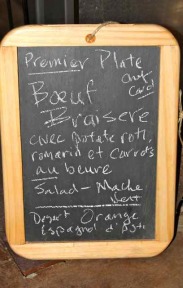 Premier Plate
Chef
Carol
Bœuf
Braisere
avec Potate roti,
romarin et Carrots
au beure
Salad - Mache
Desert Orange
Espagnol d'